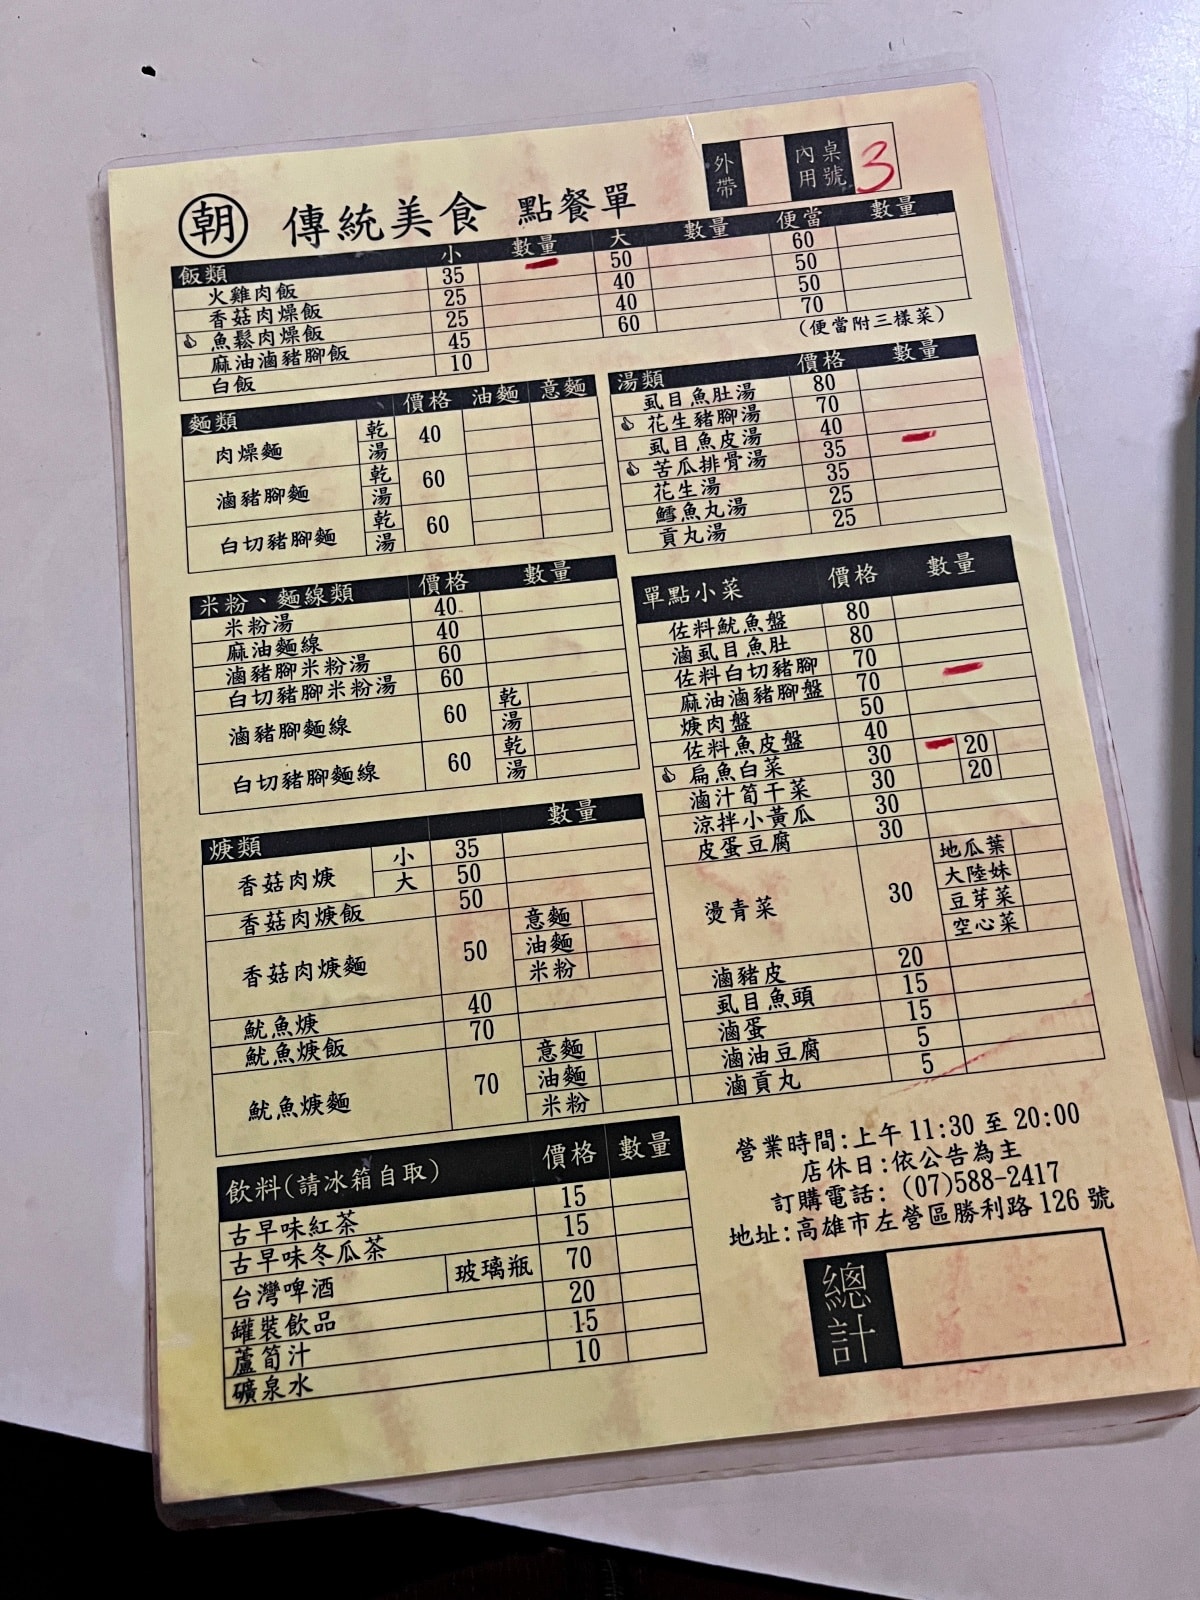 朝 傳統美食 點餐單
外帶 內用 桌號 3
飯類 小 數量 大 數量 便當 數量
火雞肉飯 35 50 60
香菇肉燥飯 25 40 50
魚鬆肉燥飯 25 40 50
麻油滷豬腳飯 45 60 70
白飯 10
(便當附三樣菜)
麵類 價格 油麵 意麵
肉燥麵 乾 湯 40
滷豬腳麵 乾 湯 60
白切豬腳麵 乾 湯 60
湯類 價格 數量
虱目魚肚湯 80
花生豬腳湯 70
虱目魚皮湯 40
苦瓜排骨湯 35
花生湯 35
鱈魚丸湯 25
貢丸湯 25
米粉、麵線類 價格 數量
米粉湯 40
麻油麵線 40
滷豬腳米粉湯 60
白切豬腳米粉湯 60
滷豬腳麵線 60 乾 湯
白切豬腳麵線 60 乾 湯
單點小菜 價格 數量
佐料魷魚盤 80
滷虱目魚肚 80
佐料白切豬腳 70
麻油滷豬腳盤 70
焿肉盤 50
佐料魚皮盤 40
扁魚白菜 30 20
滷汁筍干菜 30 20
涼拌小黃瓜 30
皮蛋豆腐 30
燙青菜 30 地瓜葉 大陸妹 豆芽菜 空心菜
滷豬皮 20
虱目魚頭 15
滷蛋 15
滷油豆腐 5
滷貢丸 5
焿類 數量
香菇肉焿 小 35
大 50
香菇肉焿飯 50
香菇肉焿麵 50 意麵 油麵 米粉
魷魚焿 40
魷魚焿飯 70
魷魚焿麵 70 意麵 油麵 米粉
飲料(請冰箱自取) 價格 數量
古早味紅茶 15
古早味冬瓜茶 15
台灣啤酒 玻璃瓶 70
罐裝飲品 20
蘆筍汁 15
礦泉水 10
營業時間:上午 11:30 至 20:00
店休日:依公告為主
訂購電話: (07)588-2417
地址:高雄市左營區勝利路 126 號
總計